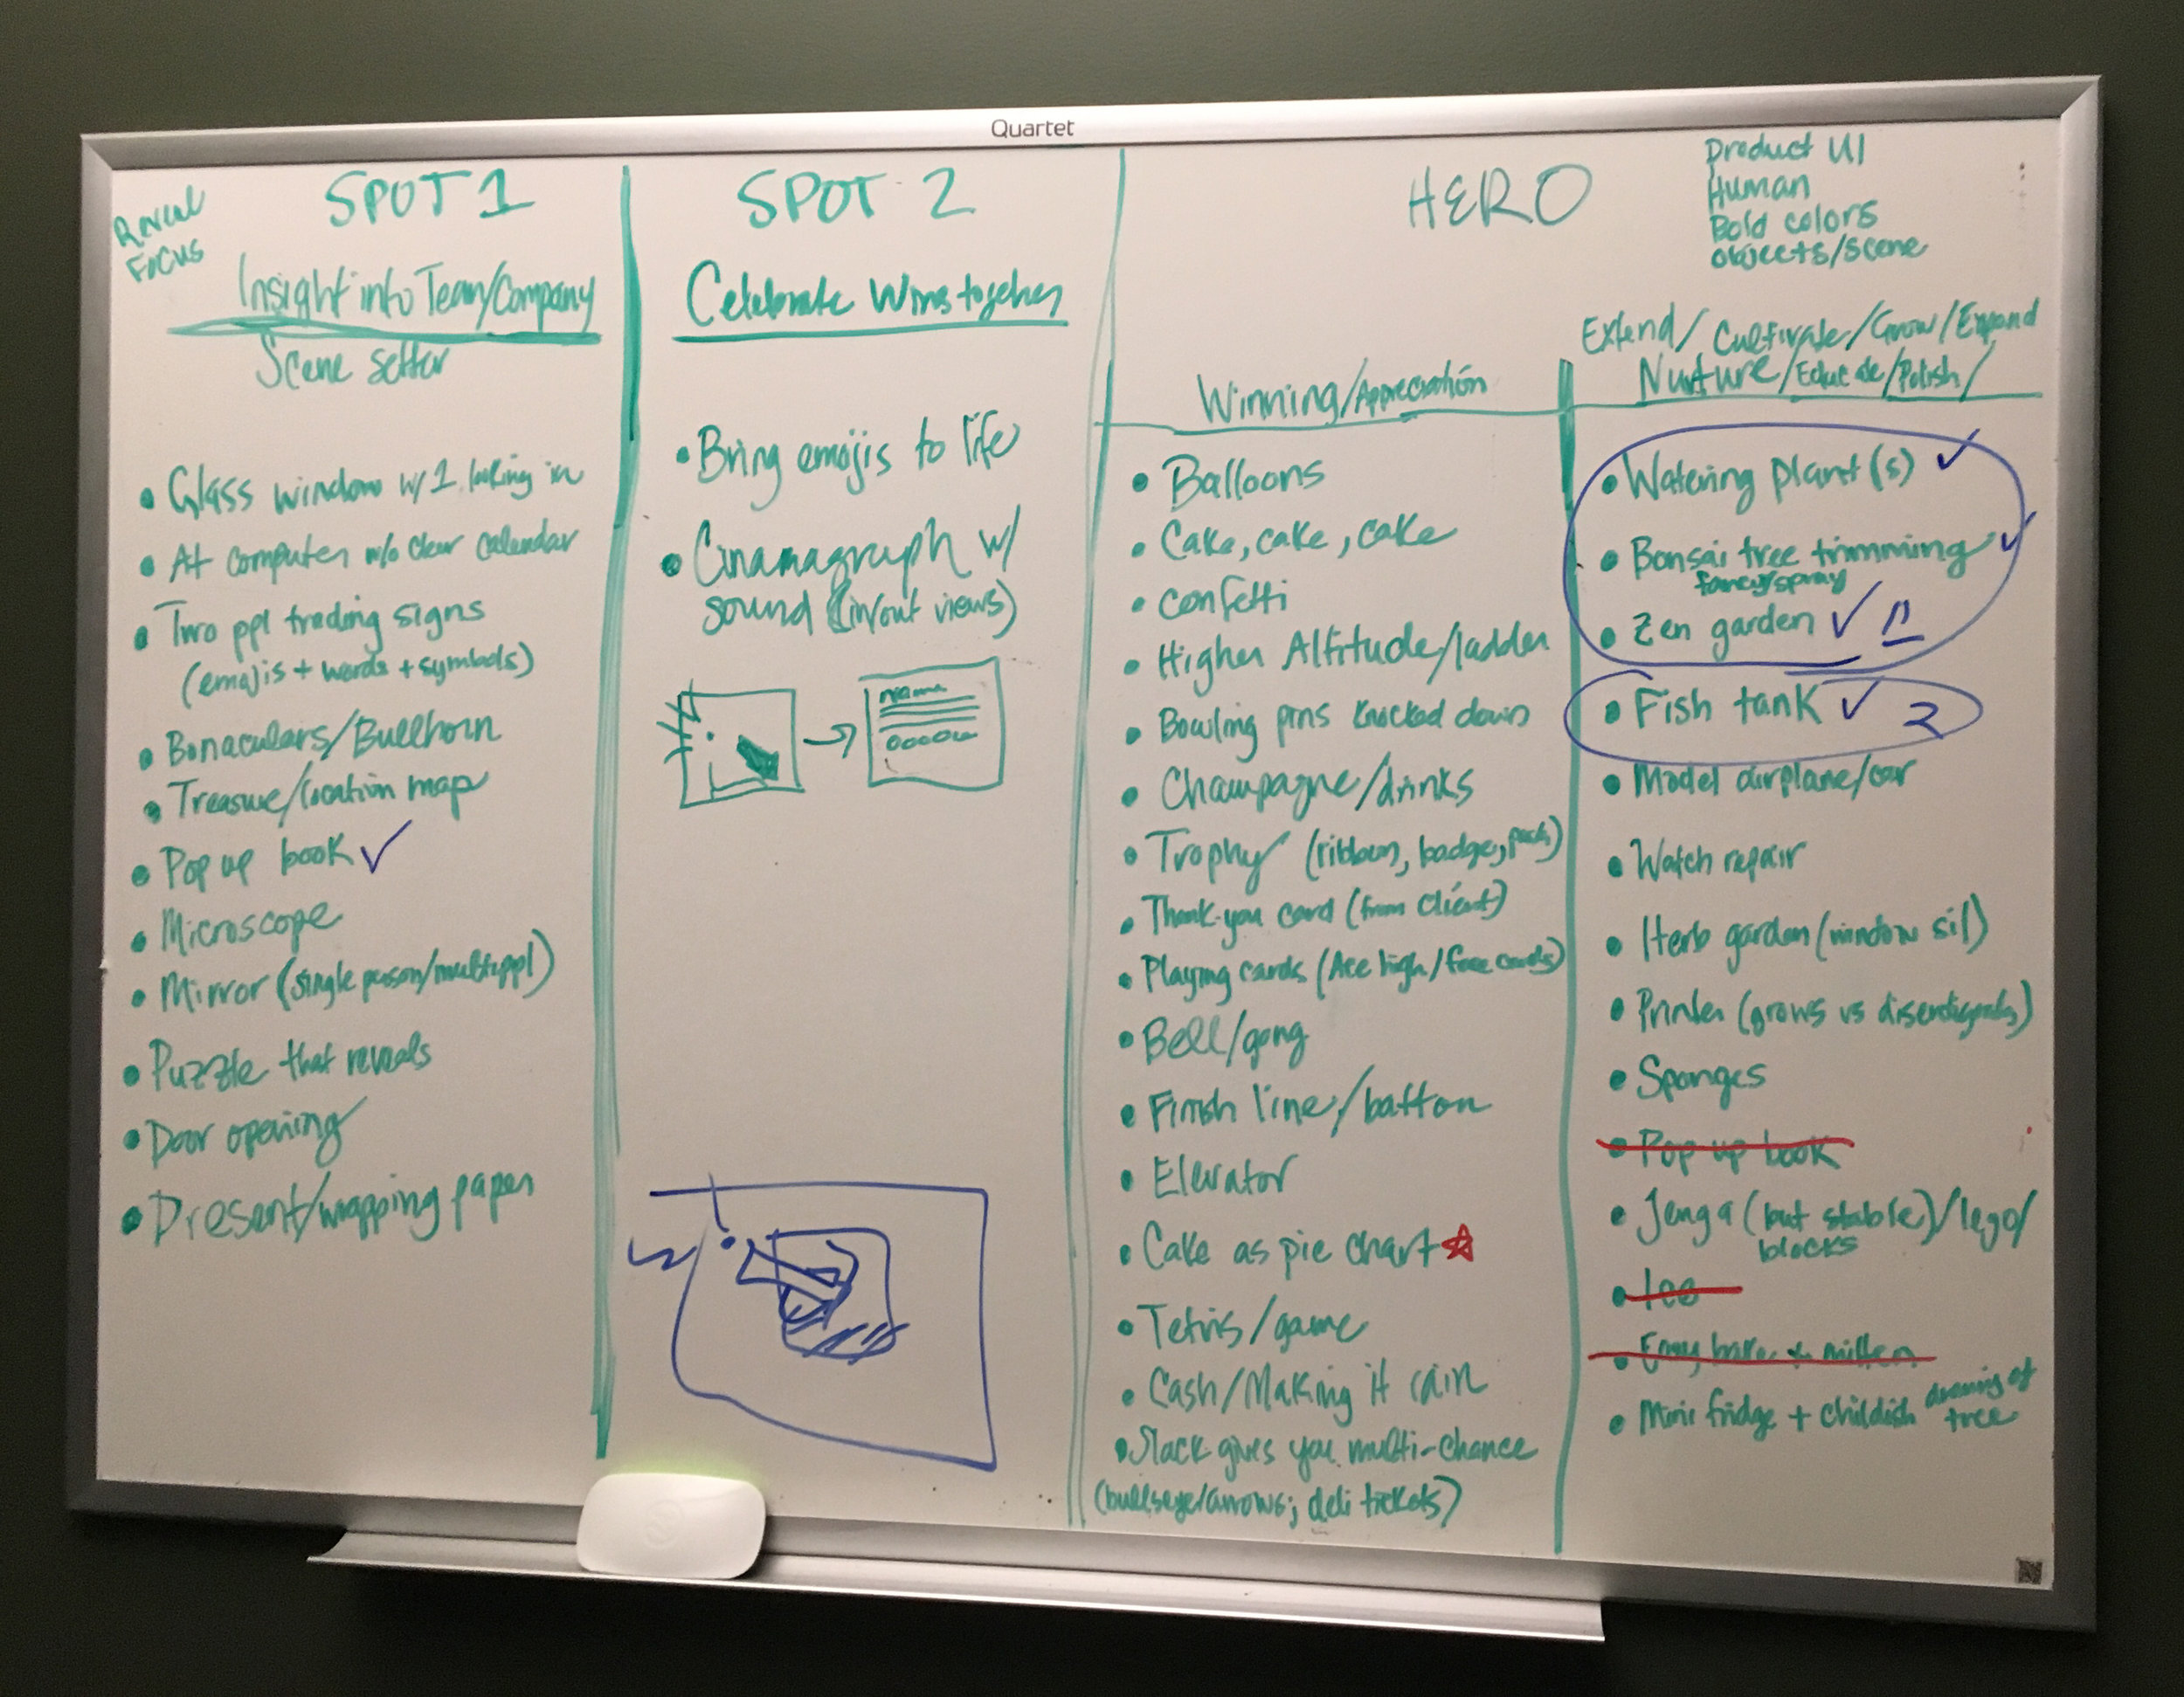 Quartet
Reveal
Focus
SPOT 1
Insight into Team/Company
Scene setter
• Glass window w/1 looking in
• At computer w/o clear calendar
• Two ppl trading signs
(emojis + words + symbols)
• Bonaculars/Bullhorn
• Treasure/location map
• Pop up book ✓
• Microscope
• Mirror (single person/multi ppl)
• Puzzle that reveals
• Door opening
• Present/wrapping paper
SPOT 2
Celebrate Wins together
• Bring emojis to life
• Cinamagraph w/
sound (in/out views)
name
HERO
Product UI
Human
Bold colors
objects/scene
Winning/Appreciation
• Balloons
• Cake, cake, cake
• Confetti
• Higher Altitude/ladder
• Bowling pins knocked down
• Champagne/drinks
• Trophy (ribbon, badge,
• Thank-you card (from client)
• Playing cards (Ace high/face cards)
• Bell/gong
• Finish line/batton
• Elevator
• Cake as pie chart ☆
• Tetris/game
• Cash/Making it rain
• Slack gives you multi-chance
(bullseye/arrows; deli tickets)
Extend/Cultivate/Grow/Expand
Nurture/Educate/Polish/
• Watering plant(s) ✓
• Bonsai tree trimming ✓
fancy/spray
• Zen garden ✓
• Fish tank ✓ 2
• Model airplane/car
• Watch repair
• Herb garden (window sil)
• Printer (grows vs
• Sponges
• Pop up book
• Jenga (but stable)/lego/
blocks
• Mini fridge + childish drawing of
tree